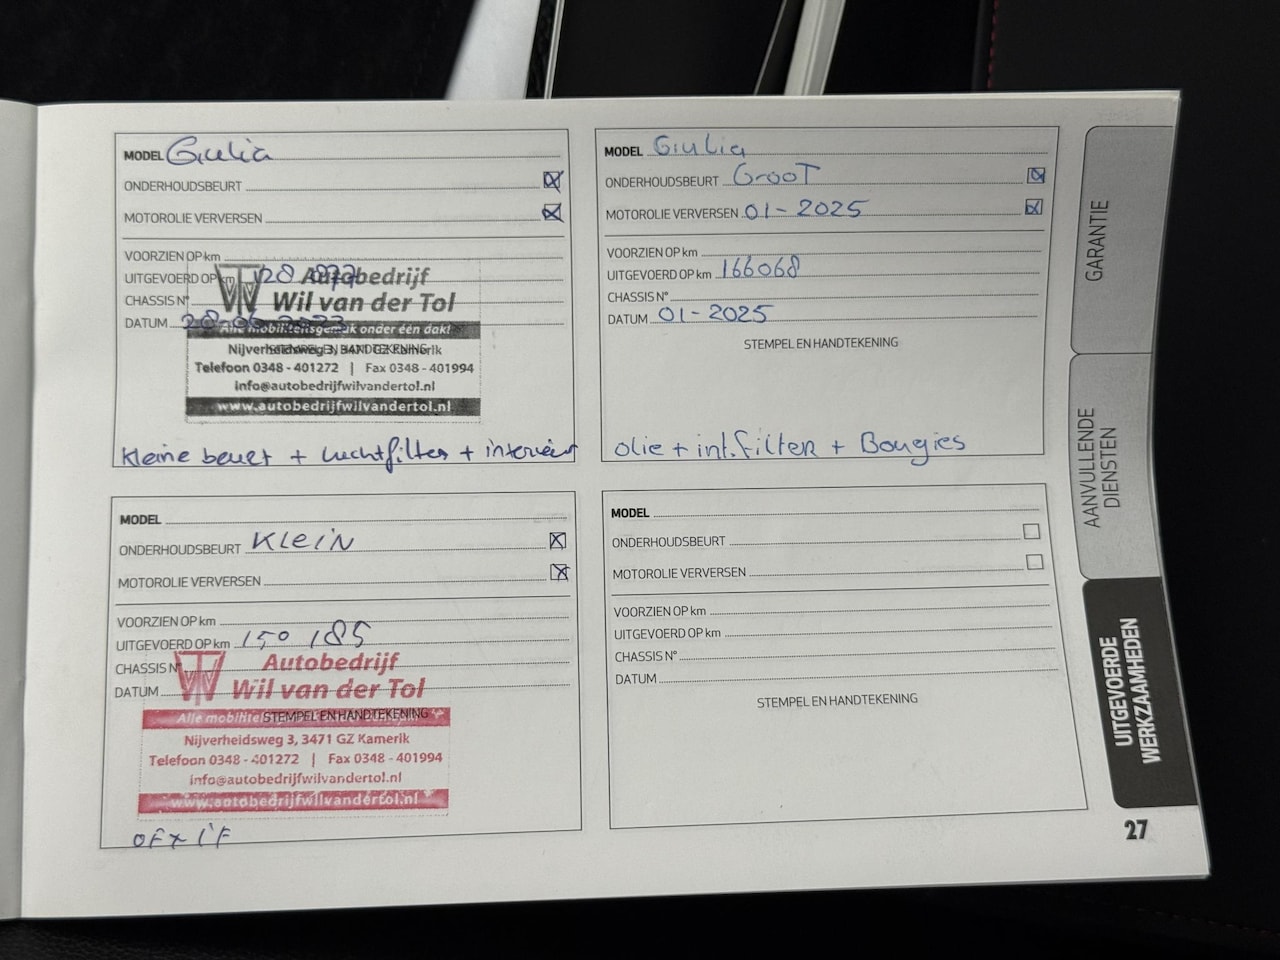 MODEL Giulia
ONDERHOUDSBEURT
MOTOROLIE VERVERSEN
VOORZIEN OP km
UITGEVOERD OP km 128 877
CHASSIS N°
DATUM 28-06-2023
STEMPEL EN HANDTEKENING
Autobedrijf
Wil van der Tol
Alle mobiliteitsgemak onder één dak!
Nijverheidsweg 3, 3471 GZ Kamerik
Telefoon 0348 - 401272 | Fax 0348 - 401994
info@autobedrijfwilvandertol.nl
www.autobedrijfwilvandertol.nl
Kleine beurt + luchtfilter + interieur
MODEL Giulia
ONDERHOUDSBEURT GrooT
MOTOROLIE VERVERSEN 01-2025
VOORZIEN OP km
UITGEVOERD OP km 166068
CHASSIS N°
DATUM 01-2025
STEMPEL EN HANDTEKENING
olie + int.filter + Bougies
MODEL
ONDERHOUDSBEURT KLEIN
MOTOROLIE VERVERSEN
VOORZIEN OP km
UITGEVOERD OP km 150 185
CHASSIS N°
DATUM
STEMPEL EN HANDTEKENING
Autobedrijf
Wil van der Tol
Alle
Nijverheidsweg 3, 3471 GZ Kamerik
Telefoon 0348 - 401272 | Fax 0348 - 401994
info@autobedrijfwilvandertol.nl
www.autobedrijfwilvandertol.nl
OF + IF
MODEL
ONDERHOUDSBEURT
MOTOROLIE VERVERSEN
VOORZIEN OP km
UITGEVOERD OP km
CHASSIS N°
DATUM
STEMPEL EN HANDTEKENING
GARANTIE
AANVULLENDE
DIENSTEN
UITGEVOERDE
WERKZAAMHEDEN
27